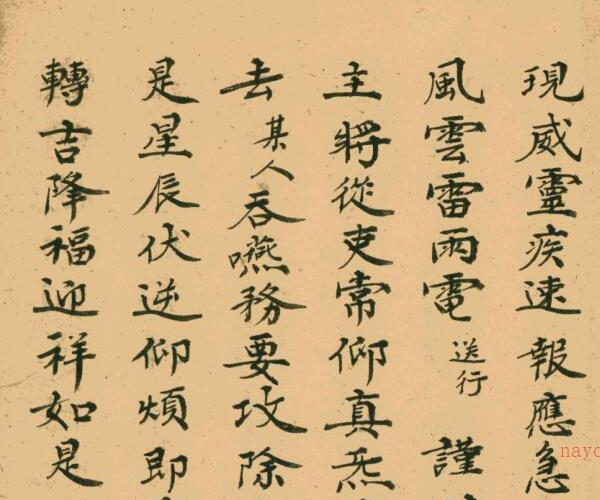 現威靈疾速報應急
風雲雷雨電送行謹
主將從吏常仰真炁
去某人吞嚥務要攻除
是星辰伏逆仰煩即
轉吉降福迎祥如是
nayc